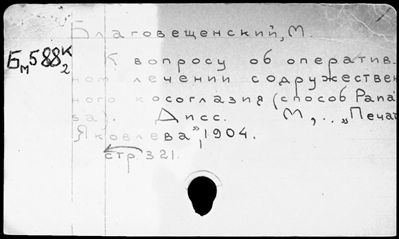 Благовещенский, М.
Бм588к2 К вопросу об оператив.
ном лечении содружествен
ного косоглазия (способ Pana
sa). Дисс. М,.. „Печат
Яковлева", 1904.
стр 321.